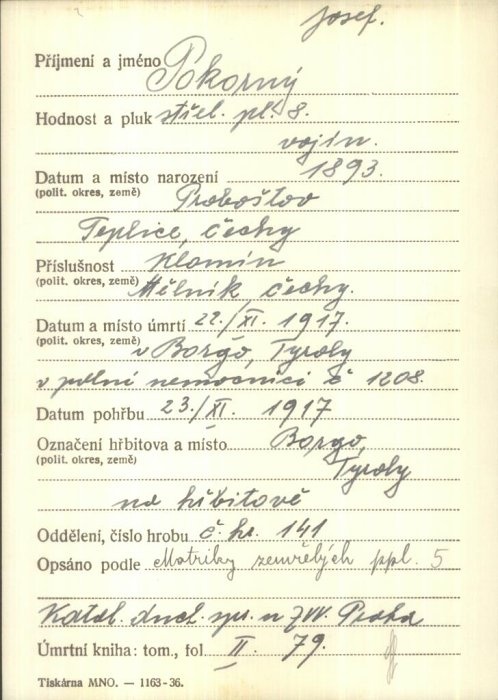 Josef.
Příjmení a jméno Pokorný
Hodnost a pluk střel. pl. 8.
vojín.
Datum a místo narození 1893.
(polit. okres, země) Proboštov
Teplice, Čechy
Příslušnost Klomín
(polit. okres, země) Mělník, Čechy.
Datum a místo úmrtí 22./XI. 1917.
(polit. okres, země) v Borgo, Tyroly
v polní nemocnici č 1208.
Datum pohřbu 23./XI. 1917
Označení hřbitova a místo Borgo,
(polit. okres, země) Tyroly
na hřbitově
Oddělení, číslo hrobu č. hr. 141
Opsáno podle Matriky zemřelých ppl. 5
Katol. duch. spr. u ZVV. Praha
Úmrtní kniha: tom., fol II. 79.
Tiskárna MNO. — 1163-36.